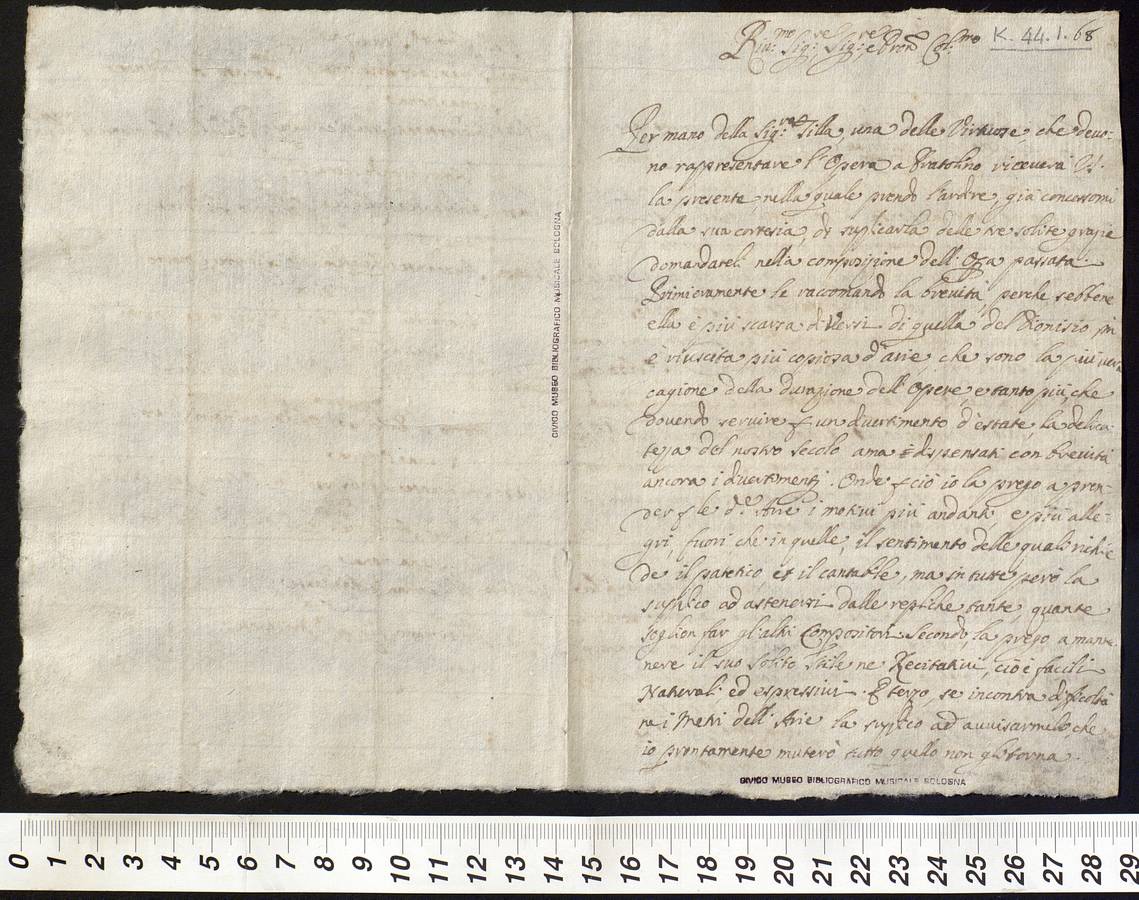 Riv:mo Sig:re Sig:re e Pron Col:mo
K. 44.1.68
Per mano della Sig:ra Tilla, una delle Virtuose, che devo-
no rappresentare l'Opera a Pratolino riceverà V.S.
la presente, nella quale prendo l'ardire, già concessomi
dalla sua cortesia, di suplicarla delle tre solite grazie
domandateli nella composizione dell'Opa passata.
Primieramente le raccomando la brevità, perche sebbene
ella è più scarsa di Versi di quella del Dionisio
è riuscita più copiosa d'arie, che sono la più vera
cagione della durazione dell'Opere e tanto più che
dovendo servire p un divertimento d'estate, la delica-
tezza del nostro secolo ama dispensati con brevità
ancora i divertimenti. Onde p ciò io la prego a pren-
der p le d.e Arie i motivi più andanti, e più alle-
gri, fuori che in quelle, il sentimento delle quali richie
de il patetico et il cantabile, ma in tutte però la
suplico ad astenersi dalle repliche tante, quante
soglion far gl'altri Compositori. Secondo, la prego a mante
nere il suo solito stile ne Recitativi, cioè facili
Naturali ed espressivi. E terzo, se incontra dificoltà
ne i Metri dell'Arie la suplico ad avvisarmelo, che
io prontamente muterò tutto quello non gli torna.
CIVICO MUSEO BIBLIOGRAFICO MUSICALE BOLOGNA
CIVICO MUSEO BIBLIOGRAFICO MUSICALE BOLOGNA
0 1 2 3 4 5 6 7 8 9 10 11 12 13 14 15 16 17 18 19 20 21 22 23 24 25 26 27 28 29